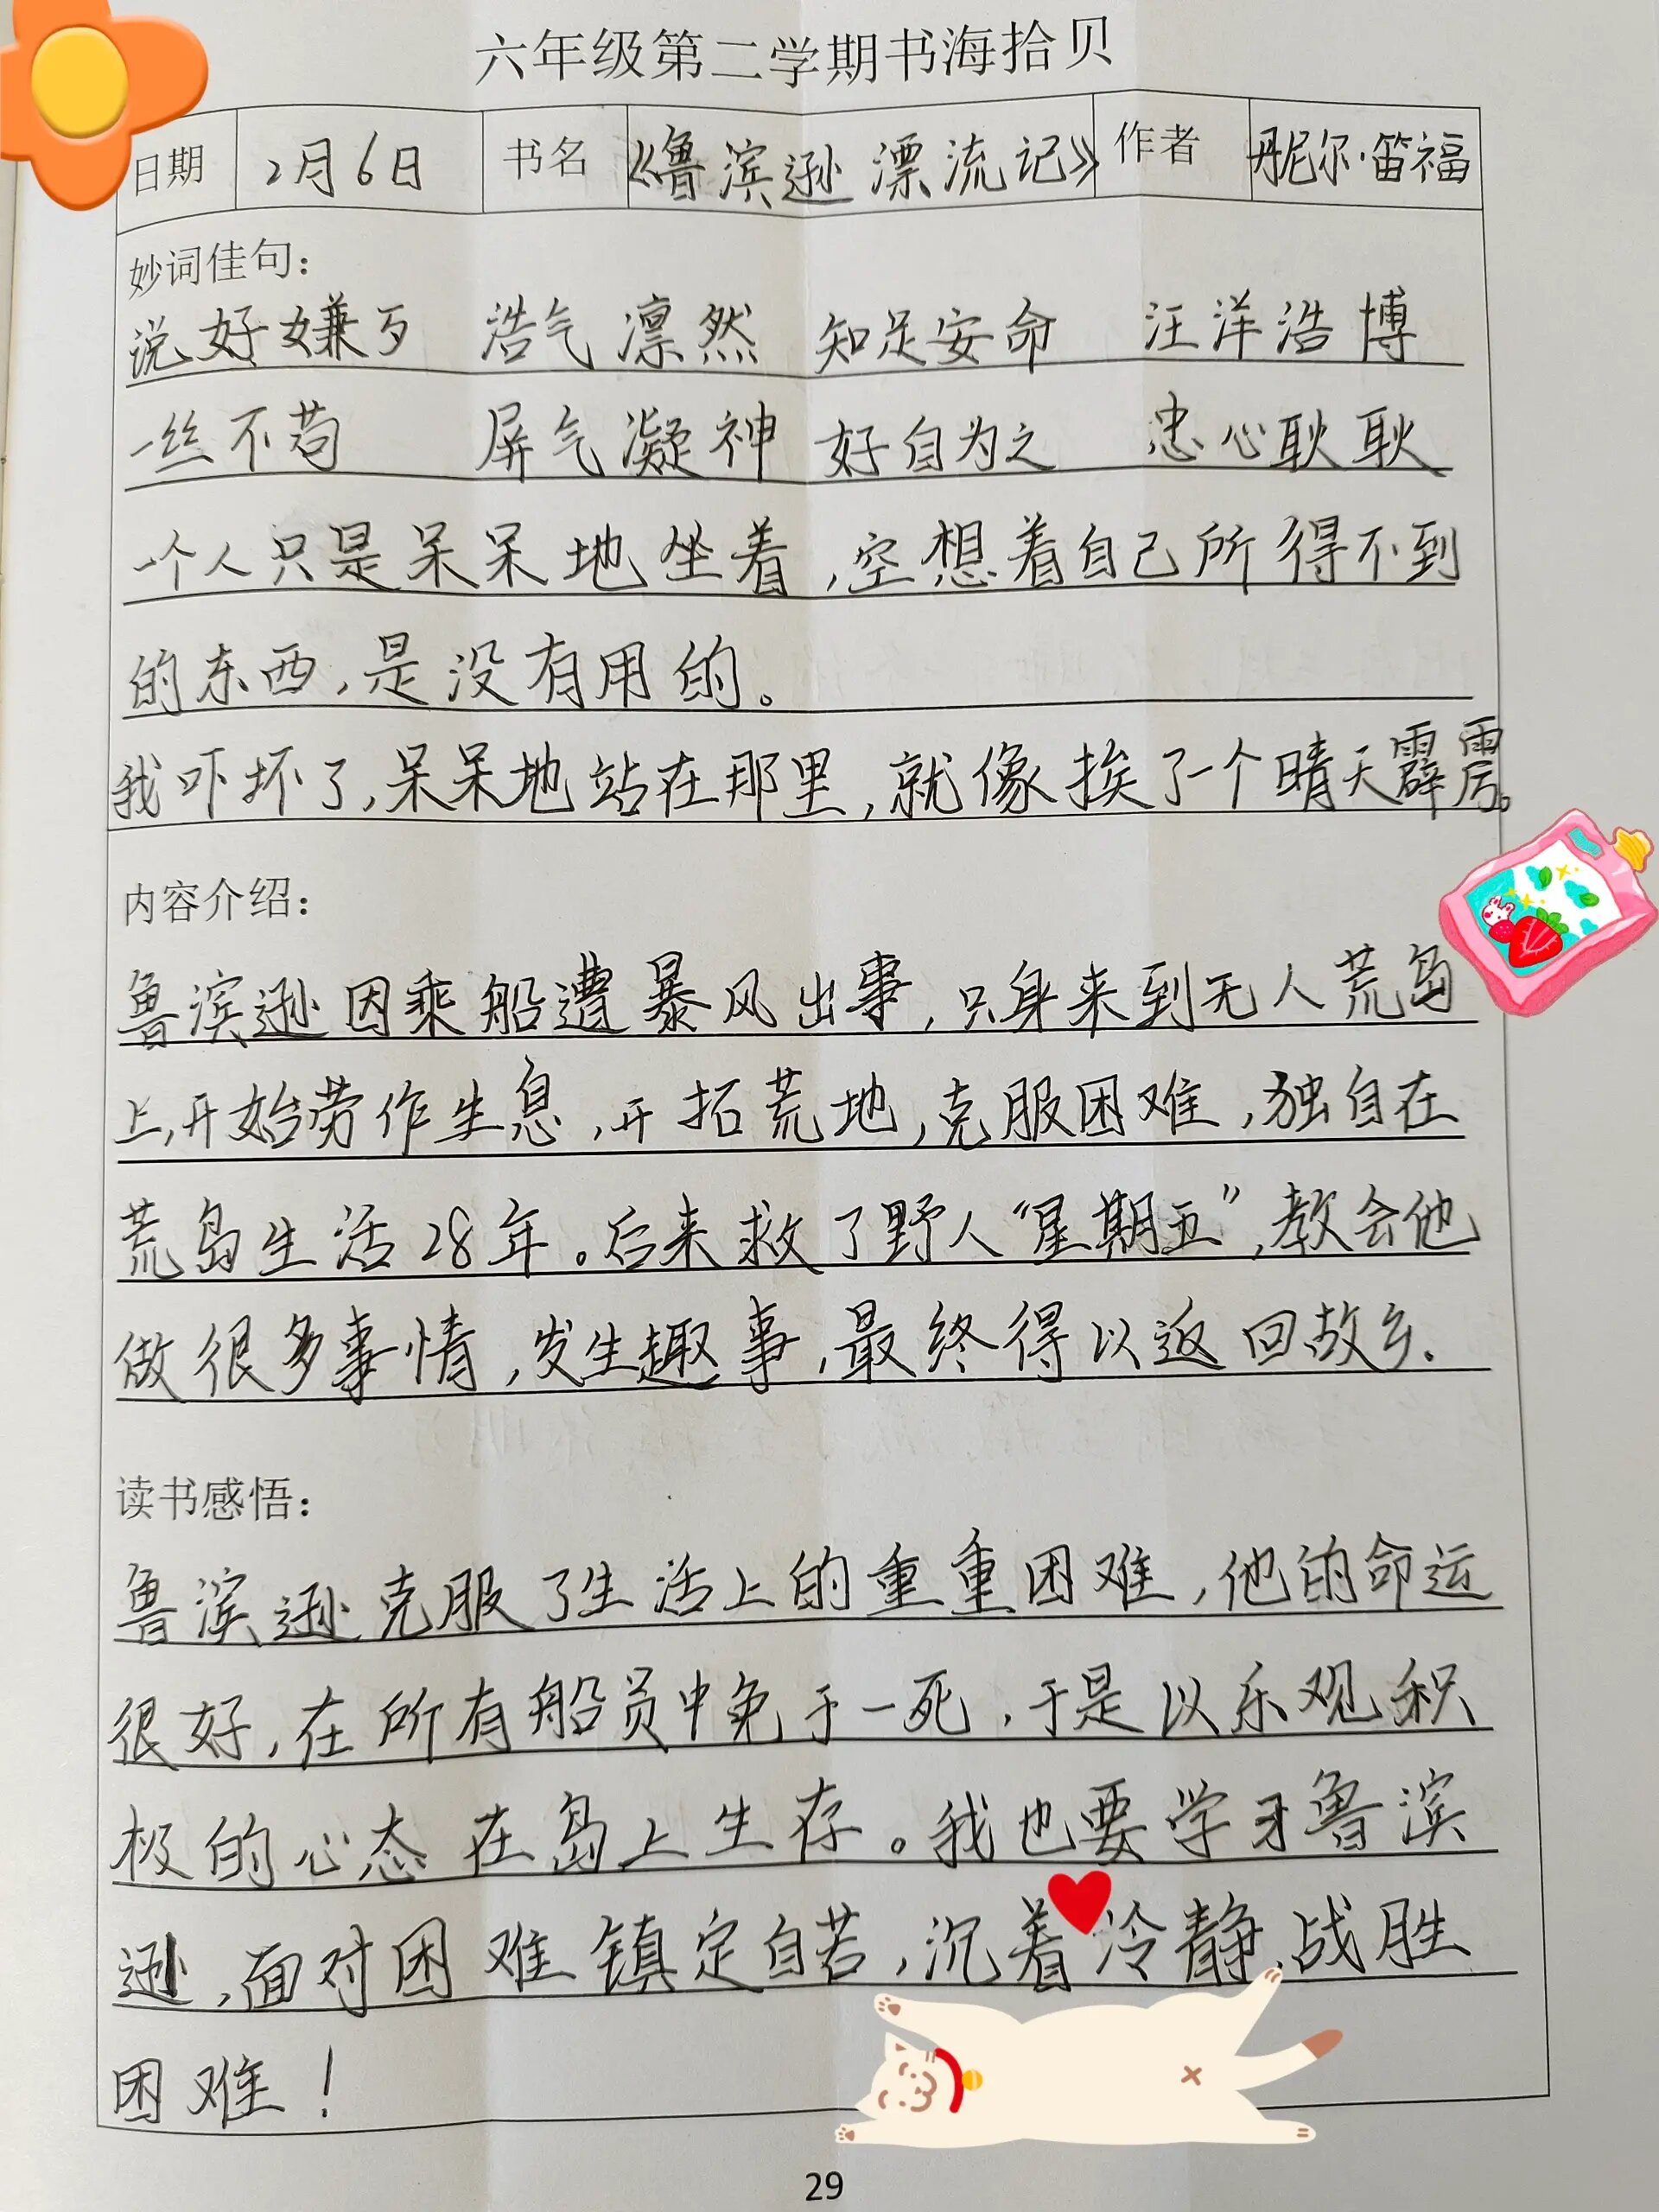 六年级第二学期书海拾贝
日期 2月6日 书名 《鲁滨逊漂流记》 作者 丹尼尔·笛福
妙词佳句：
说好嫌歹 浩气凛然 知足安命 汪洋浩博
一丝不苟 屏气凝神 好自为之 忠心耿耿
一个人只是呆呆地坐着，空想着自己所得不到
的东西，是没有用的。
我吓坏了，呆呆地站在那里，就像挨了一个晴天霹雳。
内容介绍：
鲁滨逊因乘船遭暴风出事，只身来到无人荒岛
上，开始劳作生息，开拓荒地，克服困难，独自在
荒岛生活28年。后来救了野人“星期五”，教会他
做很多事情，发生趣事，最终得以返回故乡.
读书感悟：
鲁滨逊克服了生活上的重重困难，他的命运
很好，在所有船员中免于一死，于是以乐观积
极的心态在岛上生存。我也要学习鲁滨
逊，面对困难镇定自若，沉着冷静，战胜
困难！
29